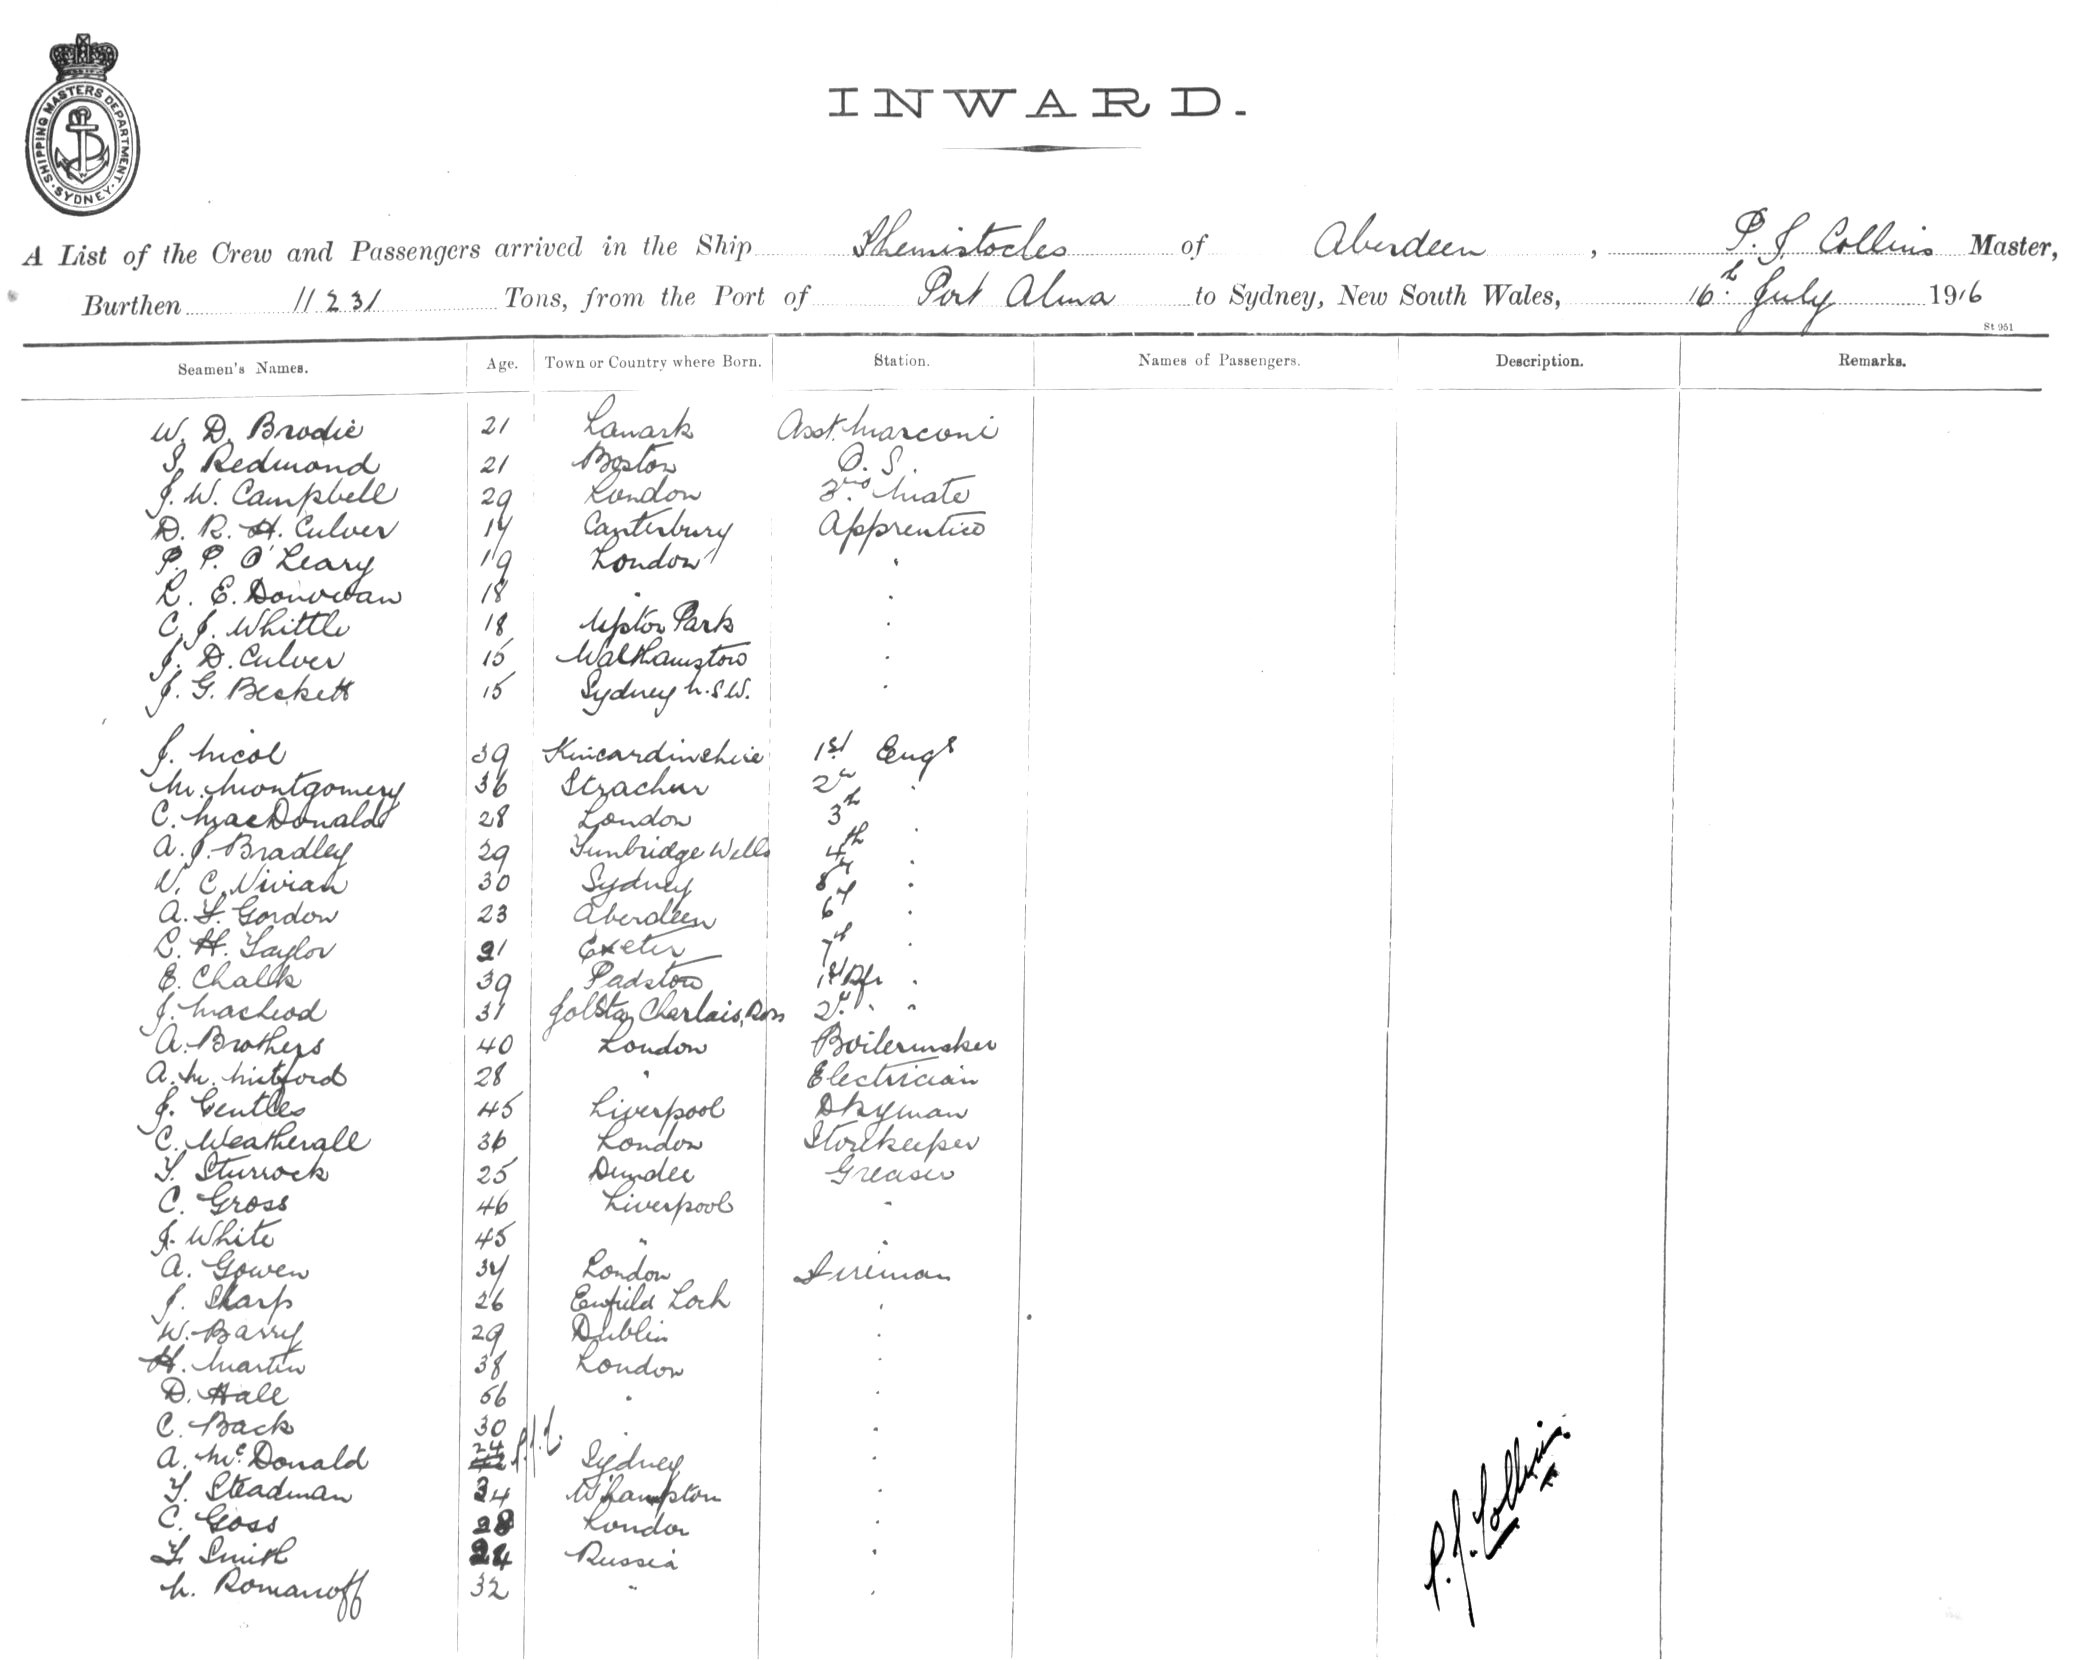 SHIPPING MASTERS DEPARTMENT. SYDNEY.
INWARD.
A List of the Crew and Passengers arrived in the Ship Themistocles of Aberdeen, P. J Collins Master,
Burthen 11231 Tons, from the Port of Port Alma to Sydney, New South Wales, 16th July 1916
St 951
Seamen's Names. Age. Town or Country where Born. Station. Names of Passengers. Description. Remarks.
W. D. Brodie 21 Lanark Asst. Marconi
S. Redmond 21 Boston O. S.
J. W. Campbell 29 London 3rd Mate
D. R. H. Culver 17 Canterbury Apprentice
P. P. O'Leary 19 London "
L. E. Donovan 18 " "
C. J. Whittle 18 Upton Park "
J. D. Culver 15 Walthamstow "
J. G. Beckett 15 Sydney N.S.W. "
J. Nicol 39 Kincardineshire 1st Engr
M. Montgomery 36 Strachur 2nd "
C. MacDonald 28 London 3rd "
A. J. Bradley 29 Tunbridge Wells 4th "
W. C. Vivian 30 Sydney 5th "
A. F. Gordon 23 Aberdeen 6th "
L. H. Taylor 21 Exeter 7th "
E. Chalk 39 Padstow 1st Rfr "
J. MacLeod 31 2nd " "
A. Brothers 40 London Boilermaker
A. M. Mitford 28 " Electrician
J. Gentles 45 Liverpool Dkyman
C. Weatherall 36 London Storekeeper
T. Sturrock 25 Dundee Greaser
C. Gross 46 Liverpool "
J. White 45 " "
A. Gowen 34 London Fireman
J. Sharp 26 Enfield Lock "
W. Barry 29 Dublin "
H. Martin 38 London "
D. Hall 56 " "
C. Back 30 " "
A. McDonald 24 P.J.C. Sydney "
T. Steadman 34 W'hampton "
C. Goss 28 London "
T. Smith 24 Russia "
N. Romanoff 32 " "
P. J. Collins